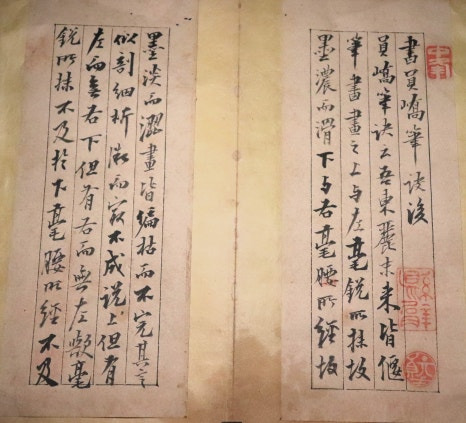 書員嶠筆訣後
員嶠筆訣云吾東麗末來皆偃
筆書畫之上与左毫銳所抹故
墨濃而滑下与右毫腰所經故
墨淡而澀畫皆偏枯而不完其言
似剖細析微而㝡不成說上但有
左而無右下但有右而無左歟毫
銳所抹不及於下毫腰所經不及